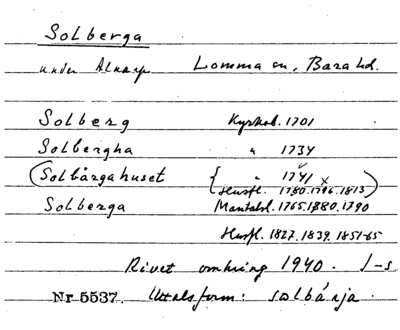 Solberga
under Alnarp Lomma sn, Bara hd.
Solberg Kyrkob. 1701
Solbergha " 1734
(Solbårgahuset { " 1741
Husfl. 1780. 1796. 1813)
Solberga Mantalsl. 1765. 1780. 1790
Husfl. 1827. 1839. 1851-65
Rivet omkring 1940. J-s
Nr 5537. Uttalsform: solbárja.